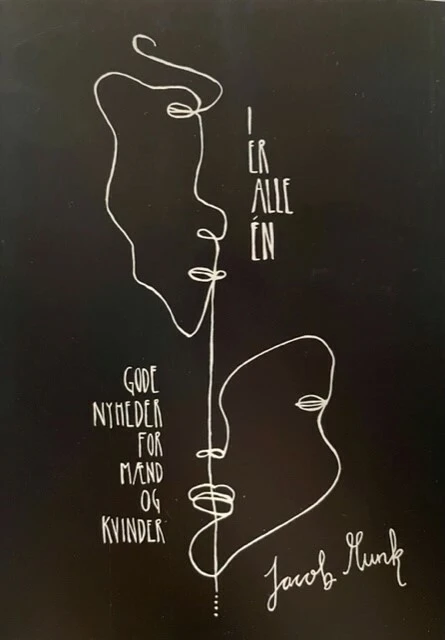 I
ER
ALLE
ÉN
GODE
NYHEDER
FOR
MÆND
OG
KVINDER
Jacob Munk